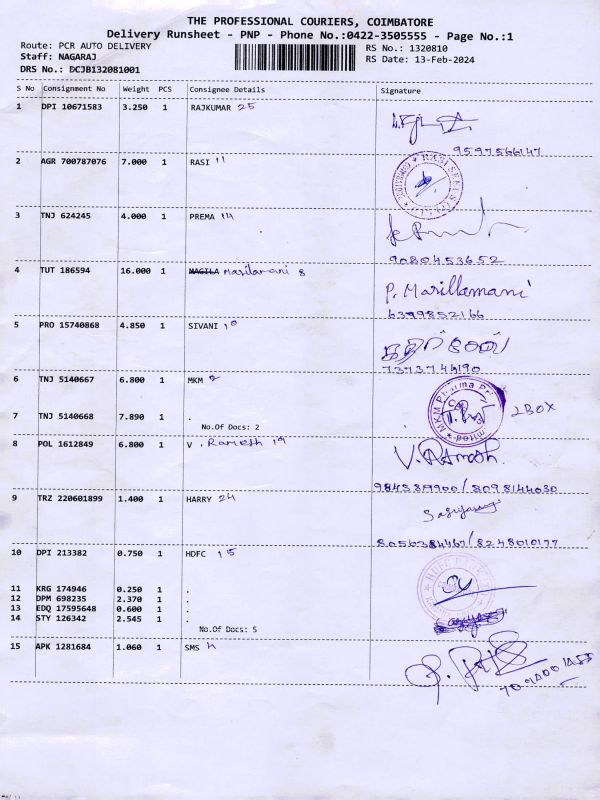 THE PROFESSIONAL COURIERS, COIMBATORE
Delivery Runsheet - PNP - Phone No.:0422-3505555 - Page No.:1
Route: PCR AUTO DELIVERY RS No.: 1320810
Staff: NAGARAJ RS Date: 13-Feb-2024
DRS No.: DCJB132081001
S No Consignment No Weight PCS Consignee Details Signature
1 DPI 10671583 3.250 1 RAJKUMAR 25
9597566147
2 AGR 700787076 7.000 1 RASI 11
3 TNJ 624245 4.000 1 PREMA 14
9080453652
4 TUT 186594 16.000 1 MAGILA Marilamani 8 P. Marillamani
6399852166
5 PRO 15740868 4.850 1 SIVANI 10
7373744190
6 TNJ 5140667 6.800 1 MKM 2
MKM Pharma
2 BOX
7 TNJ 5140668 7.890 1 .
No.Of Docs: 2
8 POL 1612849 6.800 1 V . Ramesh 19 V. Ramesh.
9 TRZ 220601899 1.400 1 HARRY 24
8056384467/8248010177
10 DPI 213382 0.750 1 HDFC 15
11 KRG 174946 0.250 1 .
12 DPM 698235 2.370 1 .
13 EDQ 17595648 0.600 1 .
14 STY 126342 2.545 1 .
No.Of Docs: 5
15 APK 1281684 1.060 1 SMS